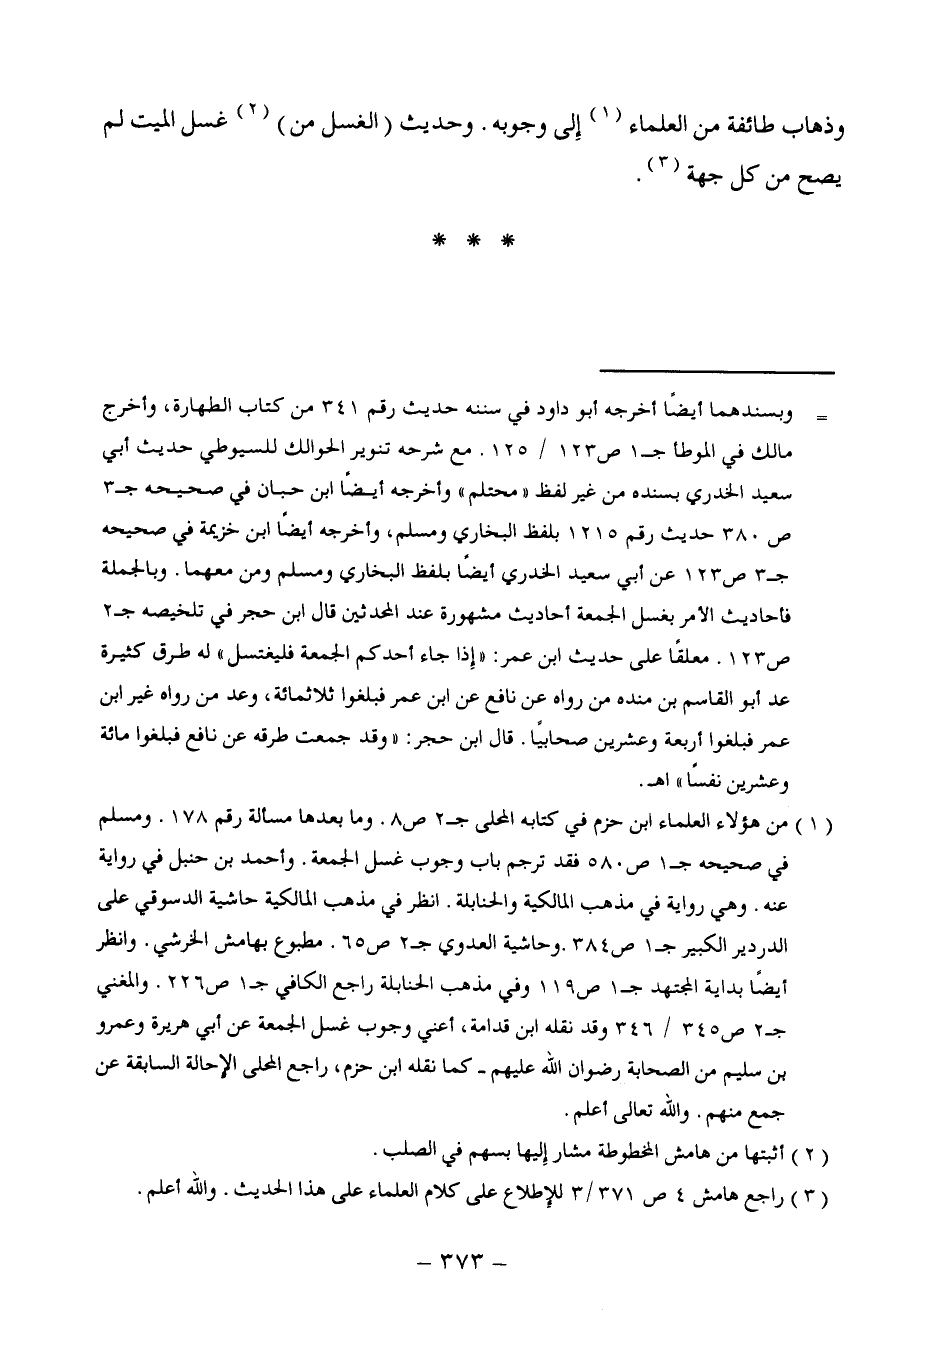 وذهاب طائفة من العلماء (١) إلى وجوبه . وحديث ( الغسل من ) (٢) غسل الميت لم
يصح من كل جهة (٣) .
* * *
= وبسندهما أيضًا أخرجه أبو داود في سننه حديث رقم ٣٤١ من كتاب الطهارة، وأخرج
مالك في الموطأ جـ١ ص١٢٣ / ١٢٥ . مع شرحه تنوير الحوالك للسيوطي حديث أبي
سعيد الخدري بسنده من غير لفظ «محتلم» وأخرجه أيضًا ابن حبان في صحيحه جـ٣
ص ٣٨٠ حديث رقم ١٢١٥ بلفظ البخاري ومسلم، وأخرجه أيضًا ابن خزيمة في صحيحه
جـ٣ ص١٢٣ عن أبي سعيد الخدري أيضًا بلفظ البخاري ومسلم ومن معهما . وبالجملة
فأحاديث الأمر بغسل الجمعة أحاديث مشهورة عند المحدثين قال ابن حجر في تلخيصه جـ٢
ص١٢٣ . معلقًا على حديث ابن عمر : «إذا جاء أحدكم الجمعة فليغتسل» له طرق كثيرة
عد أبو القاسم بن منده من رواه عن نافع عن ابن عمر فبلغوا ثلاثمائة، وعد من رواه غير ابن
عمر فبلغوا أربعة وعشرين صحابيًا . قال ابن حجر : «وقد جمعت طرقه عن نافع فبلغوا مائة
وعشرين نفسًا» اهـ .
(١) من هؤلاء العلماء ابن حزم في كتابه المحلى جـ٢ ص٨ . وما بعدها مسألة رقم ١٧٨ . ومسلم
في صحيحه جـ١ ص٥٨٠ فقد ترجم باب وجوب غسل الجمعة . وأحمد بن حنبل في رواية
عنه . وهي رواية في مذهب المالكية والحنابلة . انظر في مذهب المالكية حاشية الدسوقي على
الدردير الكبير جـ١ ص٣٨٤ .وحاشية العدوي جـ٢ ص٦٥ . مطبوع بهامش الخرشي . وانظر
أيضًا بداية المجتهد جـ١ ص١١٩ وفي مذهب الحنابلة راجع الكافي جـ١ ص٢٢٦ . والمغني
جـ٢ ص٣٤٥ / ٣٤٦ وقد نقله ابن قدامة، أعني وجوب غسل الجمعة عن أبي هريرة وعمرو
بن سليم من الصحابة رضوان الله عليهم ـ كما نقله ابن حزم، راجع المحلى الإحالة السابقة عن
جمع منهم . والله تعالى أعلم .
(٢) أثبتها من هامش المخطوطة مشار إليها بسهم في الصلب .
(٣) راجع هامش ٤ ص ٣/٣٧١ للإطلاع على كلام العلماء على هذا الحديث . والله أعلم .
– ٣٧٣ –